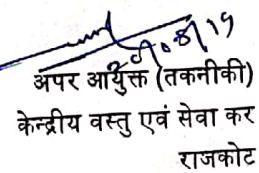 अपर आयुक्त (तकनीकी)
केन्द्रीय वस्तु एवं सेवा कर
राजकोट